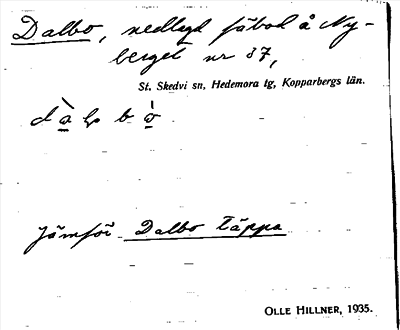 Dalbo, nedlagd fäbod å Ny-
berget nr 37,
St. Skedvi sn, Hedemora tg, Kopparbergs län.
Jämför Dalbo täppa
OLLE HILLNER, 1935.